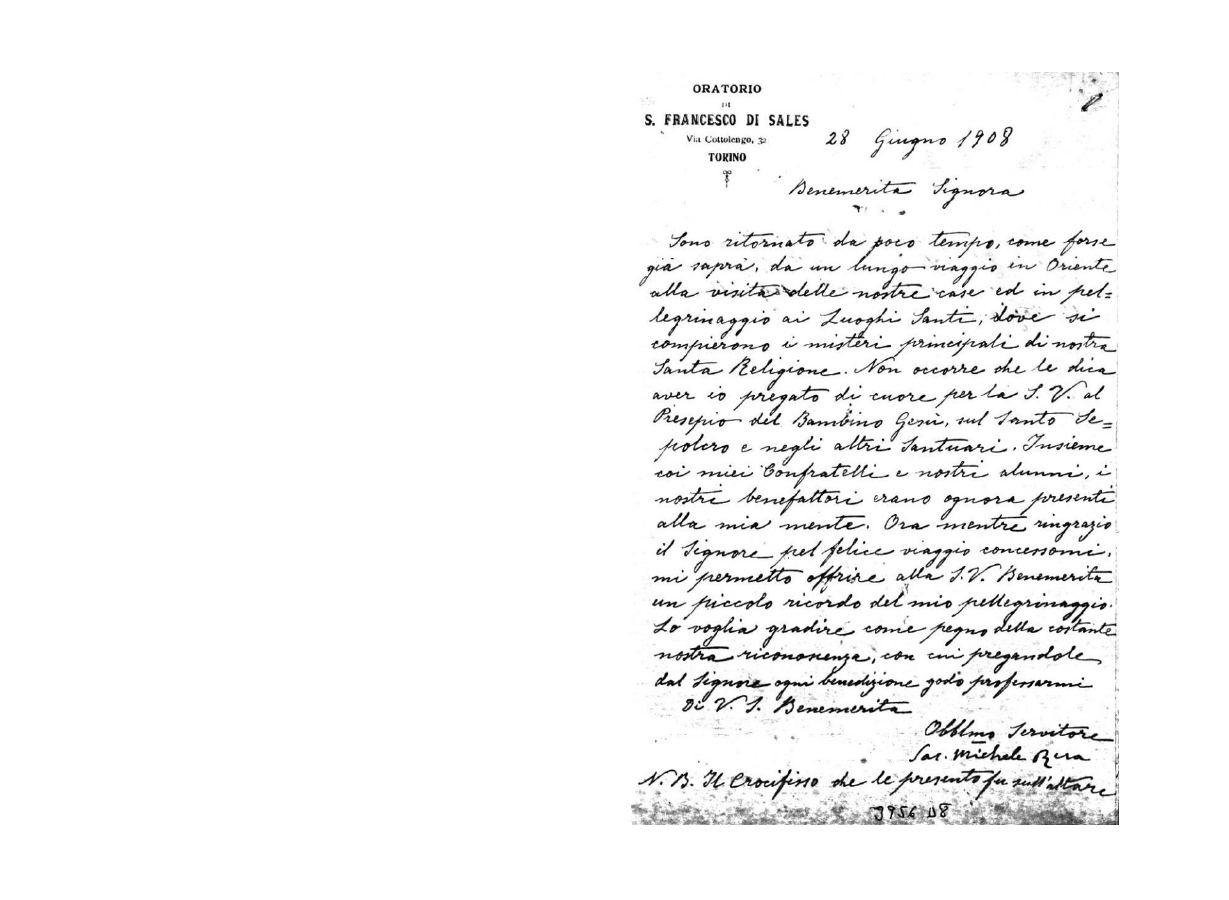 ORATORIO
DI
S. FRANCESCO DI SALES
Via Cottolengo, 32
TORINO
28 Giugno 1908
Benemerita Signora
Sono ritornato da poco tempo, come forse
già saprà, da un lungo viaggio in Oriente
alla visita delle nostre case ed in pel=
legrinaggio ai Luoghi Santi, dove si
compierono i misteri principali di nostra
Santa Religione. Non occorre che le dica
aver io pregato di cuore per la S. V. al
Presepio del Bambino Gesù, sul Santo Se=
polcro e negli altri Santuari. Insieme
coi miei Confratelli e nostri alunni, i
nostri benefattori erano ognora presenti
alla mia mente. Ora mentre ringrazio
il Signore pel felice viaggio concessomi,
mi permetto offrire alla S. V. Benemerita
un piccolo ricordo del mio pellegrinaggio.
Lo voglia gradire come pegno della costante
nostra riconoscenza, con cui pregandole
dal Signore ogni benedizione godo professarmi
Di V. S. Benemerita
Obblmo Servitore
Sac. Michele Rua
N. B. Il Crocifisso che le presento fu sull'altare
3956 D8